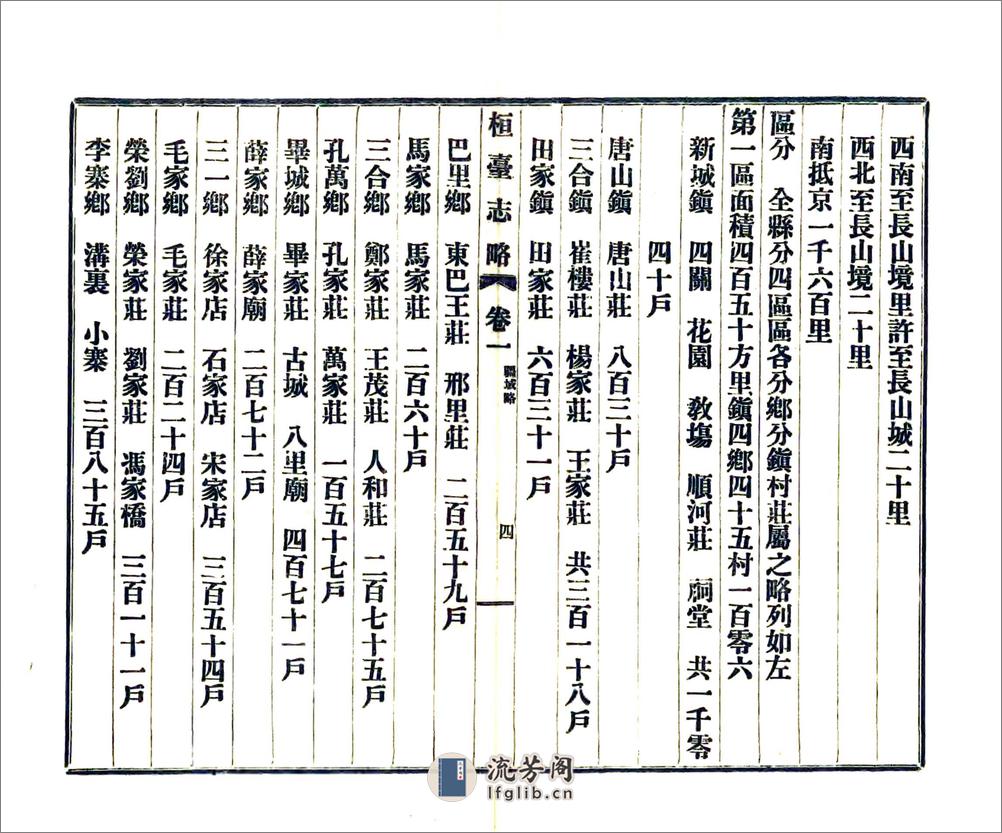 西南至長山境里許至長山城二十里
西北至長山境二十里
南抵京一千六百里
區分　全縣分四區區各分鄉分鎭村莊屬之略列如左
第一區面積四百五十方里鎭四鄉四十五村一百零六
新城鎭　四關　花園　敎塲　順河莊　祠堂　共一千零
四十戶
唐山鎭　唐山莊　八百三十戶
三合鎭　崔樓莊　楊家莊　王家莊　共三百一十八戶
田家鎭　田家莊　六百三十一戶
桓臺志略　卷一　疆域略　四
巴里鄉　東巴王莊　邢里莊　二百五十九戶
馬家鄉　馬家莊　二百六十戶
三合鄉　鄭家莊　王茂莊　人和莊　二百七十五戶
孔萬鄉　孔家莊　萬家莊　一百五十七戶
畢城鄉　畢家莊　古城　八里廟　四百七十一戶
薛家鄉　薛家廟　二百七十二戶
三一鄉　徐家店　石家店　宋家店　三百五十四戶
毛家鄉　毛家莊　二百二十四戶
榮劉鄉　榮家莊　劉家莊　馮家橋　三百一十一戶
李寨鄉　溝裏　小寨　三百八十五戶
流芳阁
lfglib.cn